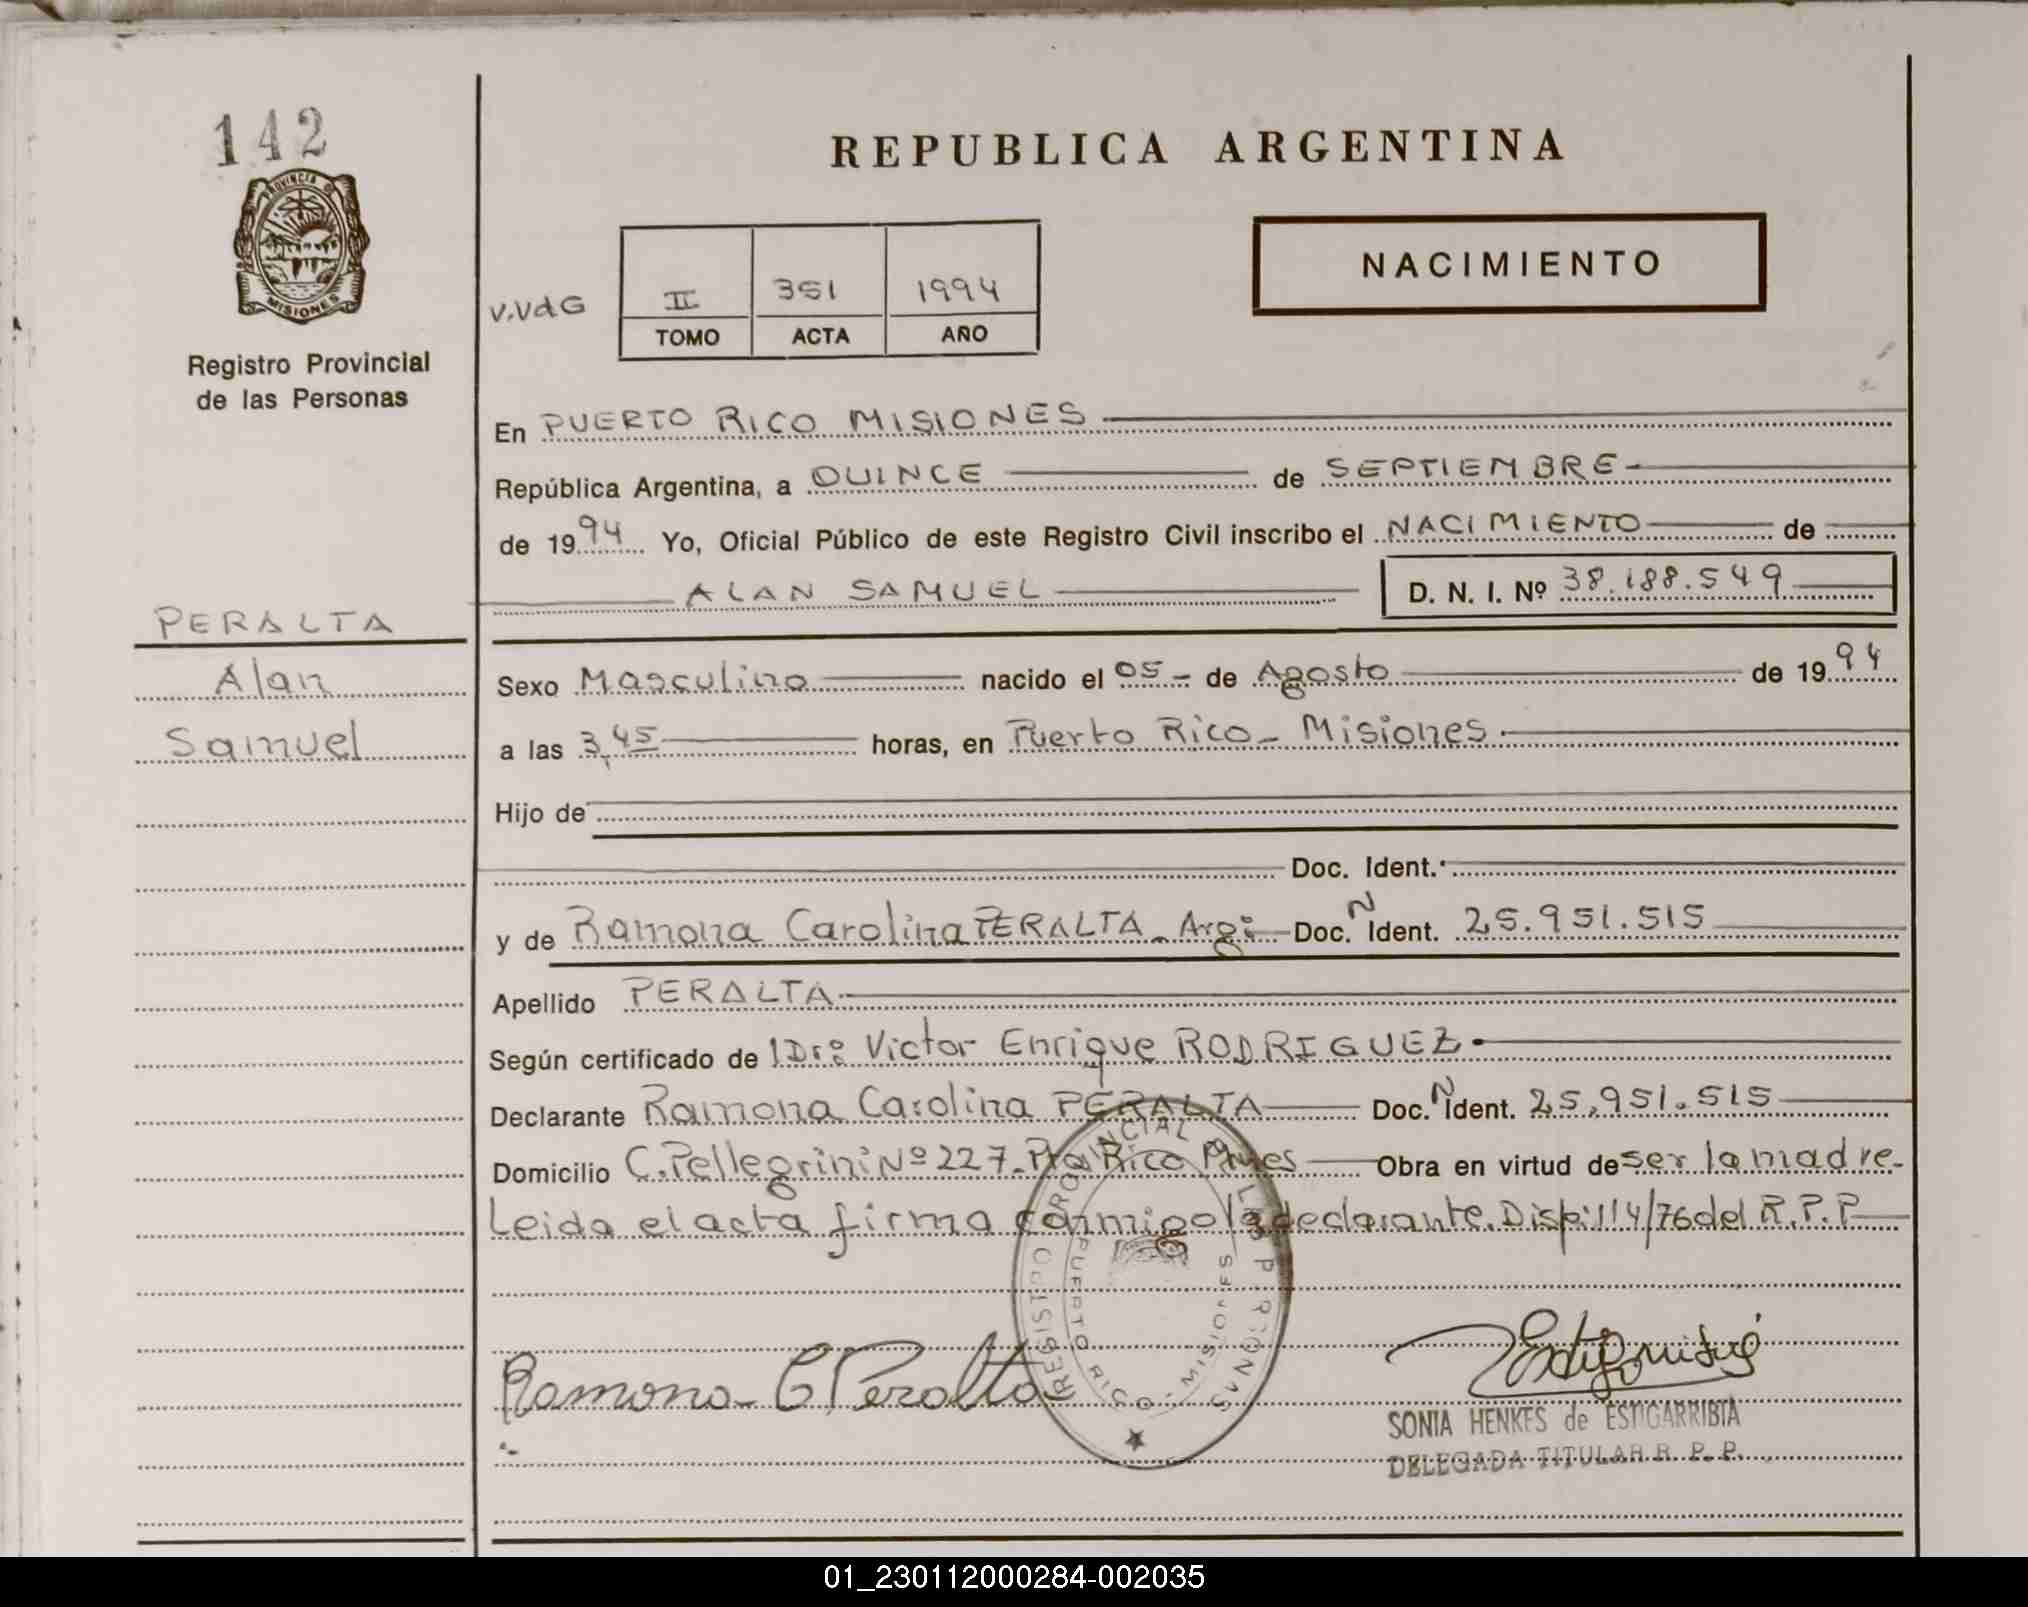 142
REPUBLICA ARGENTINA
PROVINCIA DE
MISIONES
NACIMIENTO
V.VdG
II 351 1994
TOMO ACTA AÑO
Registro Provincial
de las Personas
En PUERTO RICO MISIONES
República Argentina, a QUINCE de SEPTIEMBRE
de 1994 Yo, Oficial Público de este Registro Civil inscribo el NACIMIENTO de
ALAN SAMUEL D. N. I. Nº 38.188.549
PERALTA
Alan
Samuel
Sexo Masculino nacido el 05 de Agosto de 1994
a las 3,45 horas, en Puerto Rico - Misiones
Hijo de
Doc. Ident.
y de Ramona Carolina PERALTA - Arg: Doc. N Ident. 25.951.515
Apellido PERALTA
Según certificado de Dr: Victor Enrique RODRIGUEZ
Declarante Ramona Carolina PERALTA Doc. N Ident. 25,951.515
Domicilio C. Pellegrini Nº 227. Pto Rico Mnes Obra en virtud de ser la madre.
Leida el acta firma conmigo la declarante. Disp: 114/76 del R.P.P
REGISTRO PROVINCIAL DE LAS PERSONAS
PUERTO RICO - MISIONES
Ramona C Peralta
SONIA HENKES de ESTIGARRIBIA
DELEGADA TITULAR R. P. P.
01_230112000284-002035